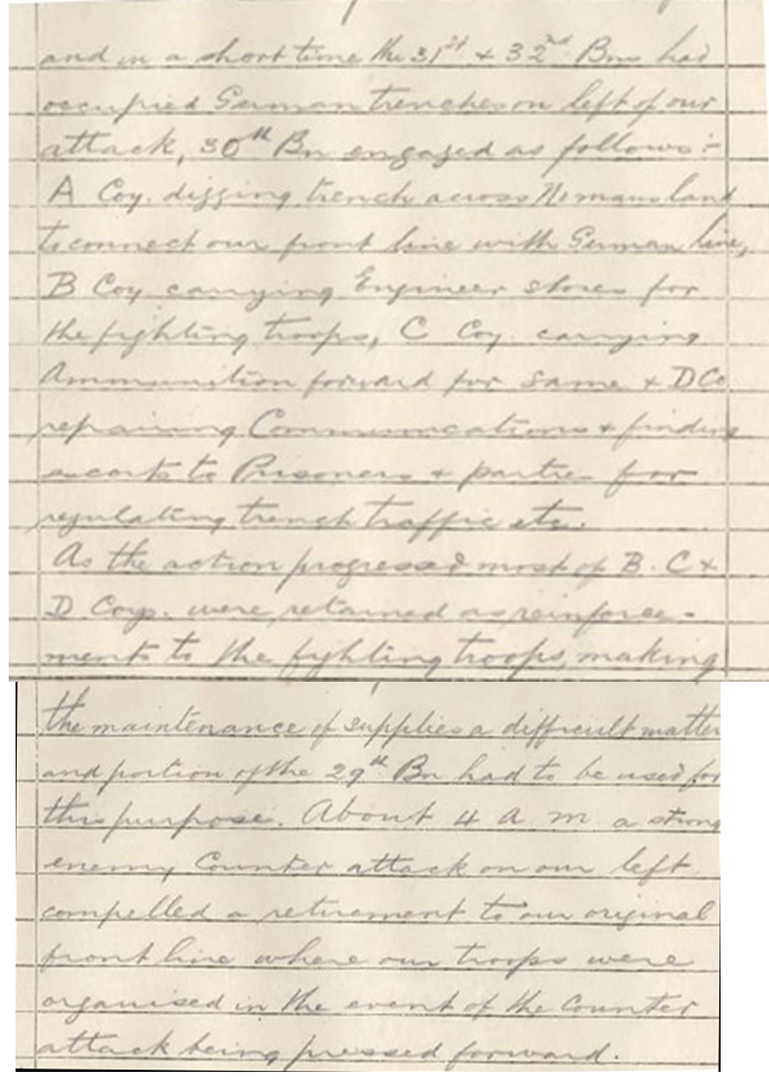 and in a short time the 31st + 32nd Bns had
occupied German trenches on left of our
attack, 30th Bn engaged as follows:-
A Coy. digging trench across No mans land
to connect our front line with German line,
B Coy carrying Engineer stores for
the fighting troops, C Coy. carrying
Ammunition forward for same + D Co
repairing Communications + finding
escorts to Prisoners + parties for
regulating trench traffic etc.
As the action progressed most of B. C +
D Coys. were retained as reinforce-
ments to the fighting troops, making
the maintenance of supplies a difficult matter
and portion of the 29th Bn had to be used for
this purpose. About 4 A. m a strong
enemy Counter attack on our left
compelled a retirement to our original
front line where our troops were
organised in the event of the Counter
attack being pressed forward.